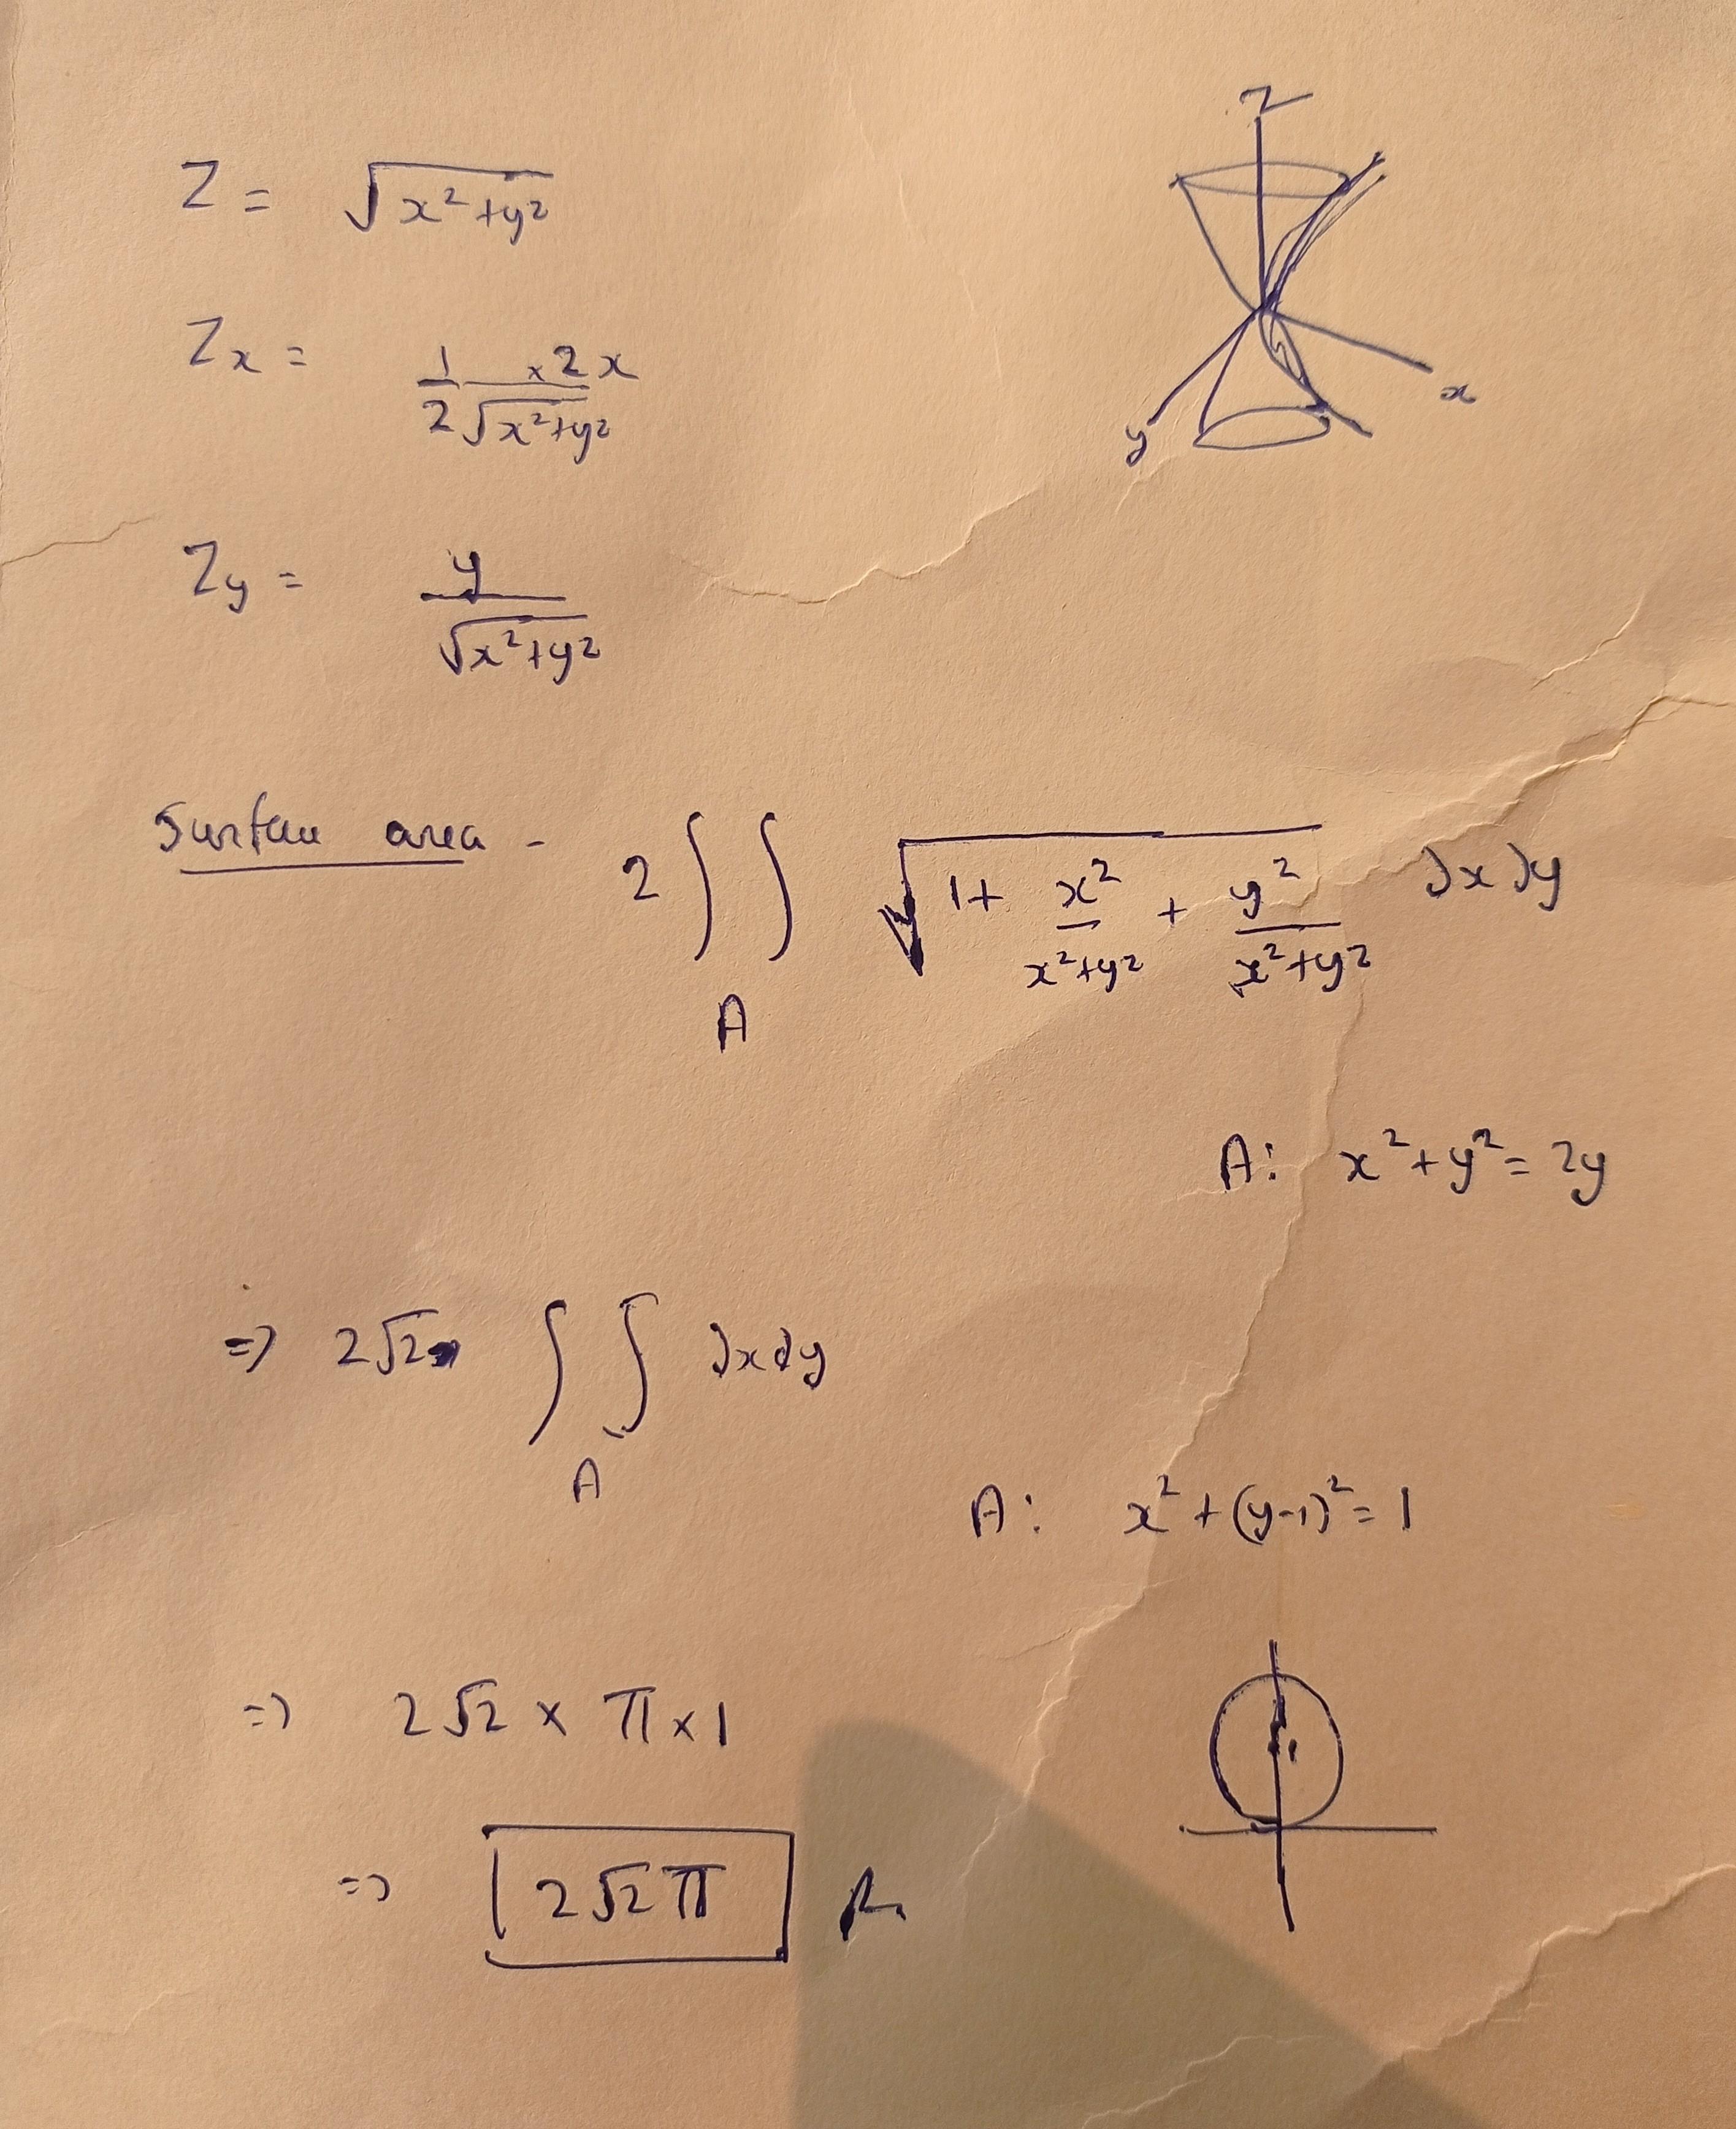 Z
Z = √(x²+y²)
Zx = 1/2 × 2x/√(x²+y²)
x
y
Zy = y/√(x²+y²)
Surface area - 2∫∫ √(1 + x²/(x²+y²) + y²/(x²+y²)) dx dy
A
A: x²+y² = 2y
=> 2√2 ∫∫ dxdy
A
A: x² + (y-1)² = 1
=> 2√2 × π × 1
=> 2√2 π